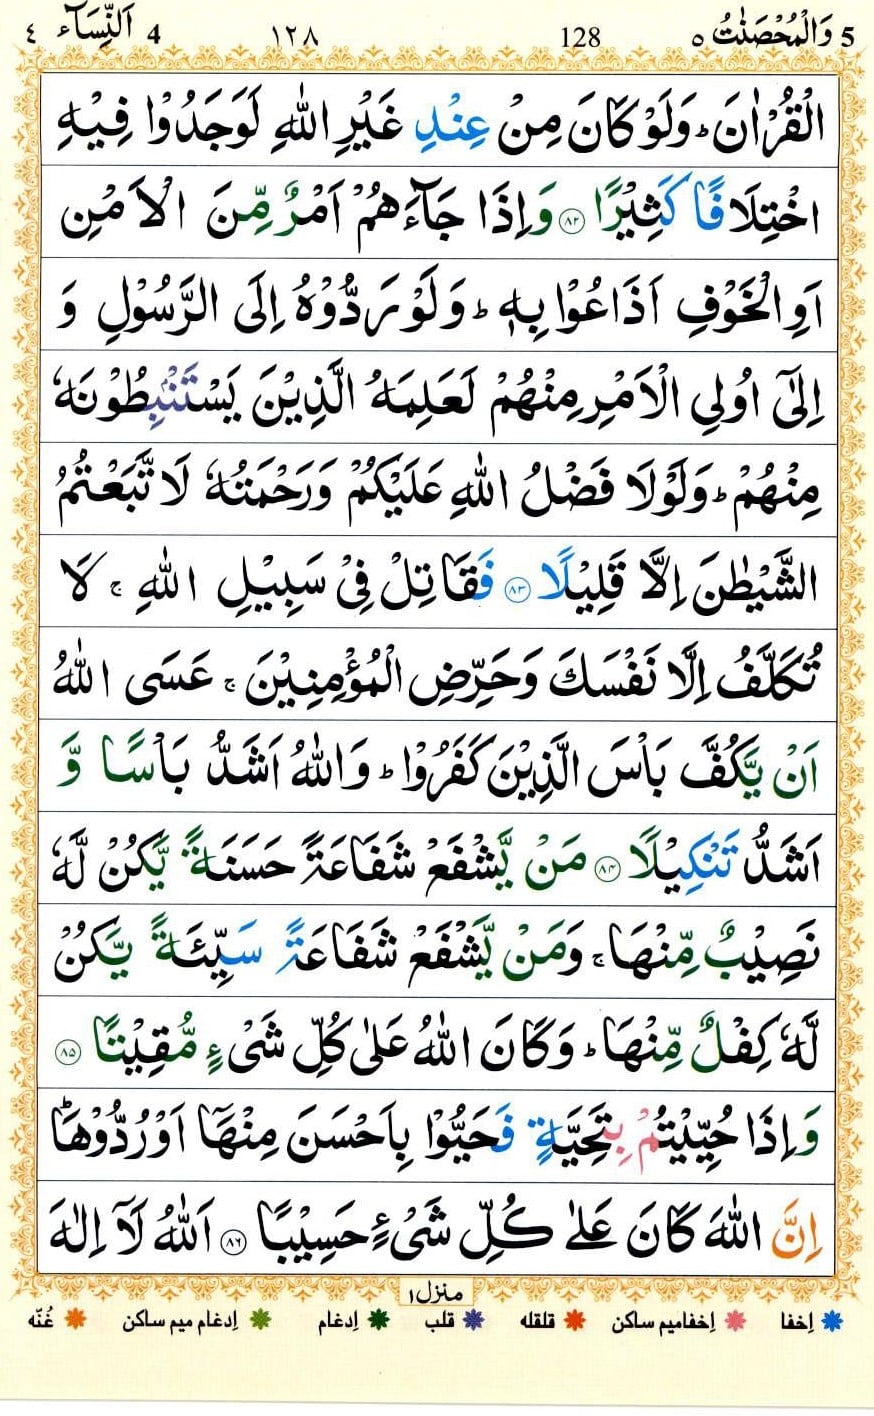 5 وَالْمُحْصَنٰتُ ٥ 128 ١٢٨ 4 اَلنِّسَآء ٤
الْقُرْاٰنَ ؕ وَلَوْ كَانَ مِنْ عِنْدِ غَيْرِ اللّٰهِ لَوَجَدُوْا فِيْهِ
اخْتِلَافًا كَثِيْرًا ۝٨٢ وَاِذَا جَآءَهُمْ اَمْرٌ مِّنَ الْاَمْنِ
اَوِ الْخَوْفِ اَذَاعُوْا بِهٖ ؕ وَلَوْ رَدُّوْهُ اِلَى الرَّسُوْلِ وَ
اِلٰٓى اُولِى الْاَمْرِ مِنْهُمْ لَعَلِمَهُ الَّذِيْنَ يَسْتَنْۢبِطُوْنَهٗ
مِنْهُمْ ؕ وَلَوْلَا فَضْلُ اللّٰهِ عَلَيْكُمْ وَرَحْمَتُهٗ لَا تَّبَعْتُمُ
الشَّيْطٰنَ اِلَّا قَلِيْلًا ۝٨٣ فَقَاتِلْ فِيْ سَبِيْلِ اللّٰهِ ۚ لَا
تُكَلَّفُ اِلَّا نَفْسَكَ وَحَرِّضِ الْمُؤْمِنِيْنَ ۚ عَسَى اللّٰهُ
اَنْ يَّكُفَّ بَاْسَ الَّذِيْنَ كَفَرُوْا ؕ وَاللّٰهُ اَشَدُّ بَاْسًا وَّ
اَشَدُّ تَنْكِيْلًا ۝٨٤ مَنْ يَّشْفَعْ شَفَاعَةً حَسَنَةً يَّكُنْ لَّهٗ
نَصِيْبٌ مِّنْهَا ۚ وَمَنْ يَّشْفَعْ شَفَاعَةً سَيِّئَةً يَّكُنْ
لَّهٗ كِفْلٌ مِّنْهَا ؕ وَكَانَ اللّٰهُ عَلٰى كُلِّ شَيْءٍ مُّقِيْتًا ۝٨٥
وَاِذَا حُيِّيْتُمْ بِتَحِيَّةٍ فَحَيُّوْا بِاَحْسَنَ مِنْهَآ اَوْ رُدُّوْهَا ؕ
اِنَّ اللّٰهَ كَانَ عَلٰى كُلِّ شَيْءٍ حَسِيْبًا ۝٨٦ اَللّٰهُ لَآ اِلٰهَ
منزل ١
اِخفا اِخفامیم ساکن قلقله قلب اِدغام اِدغام میم ساکن غُنّه